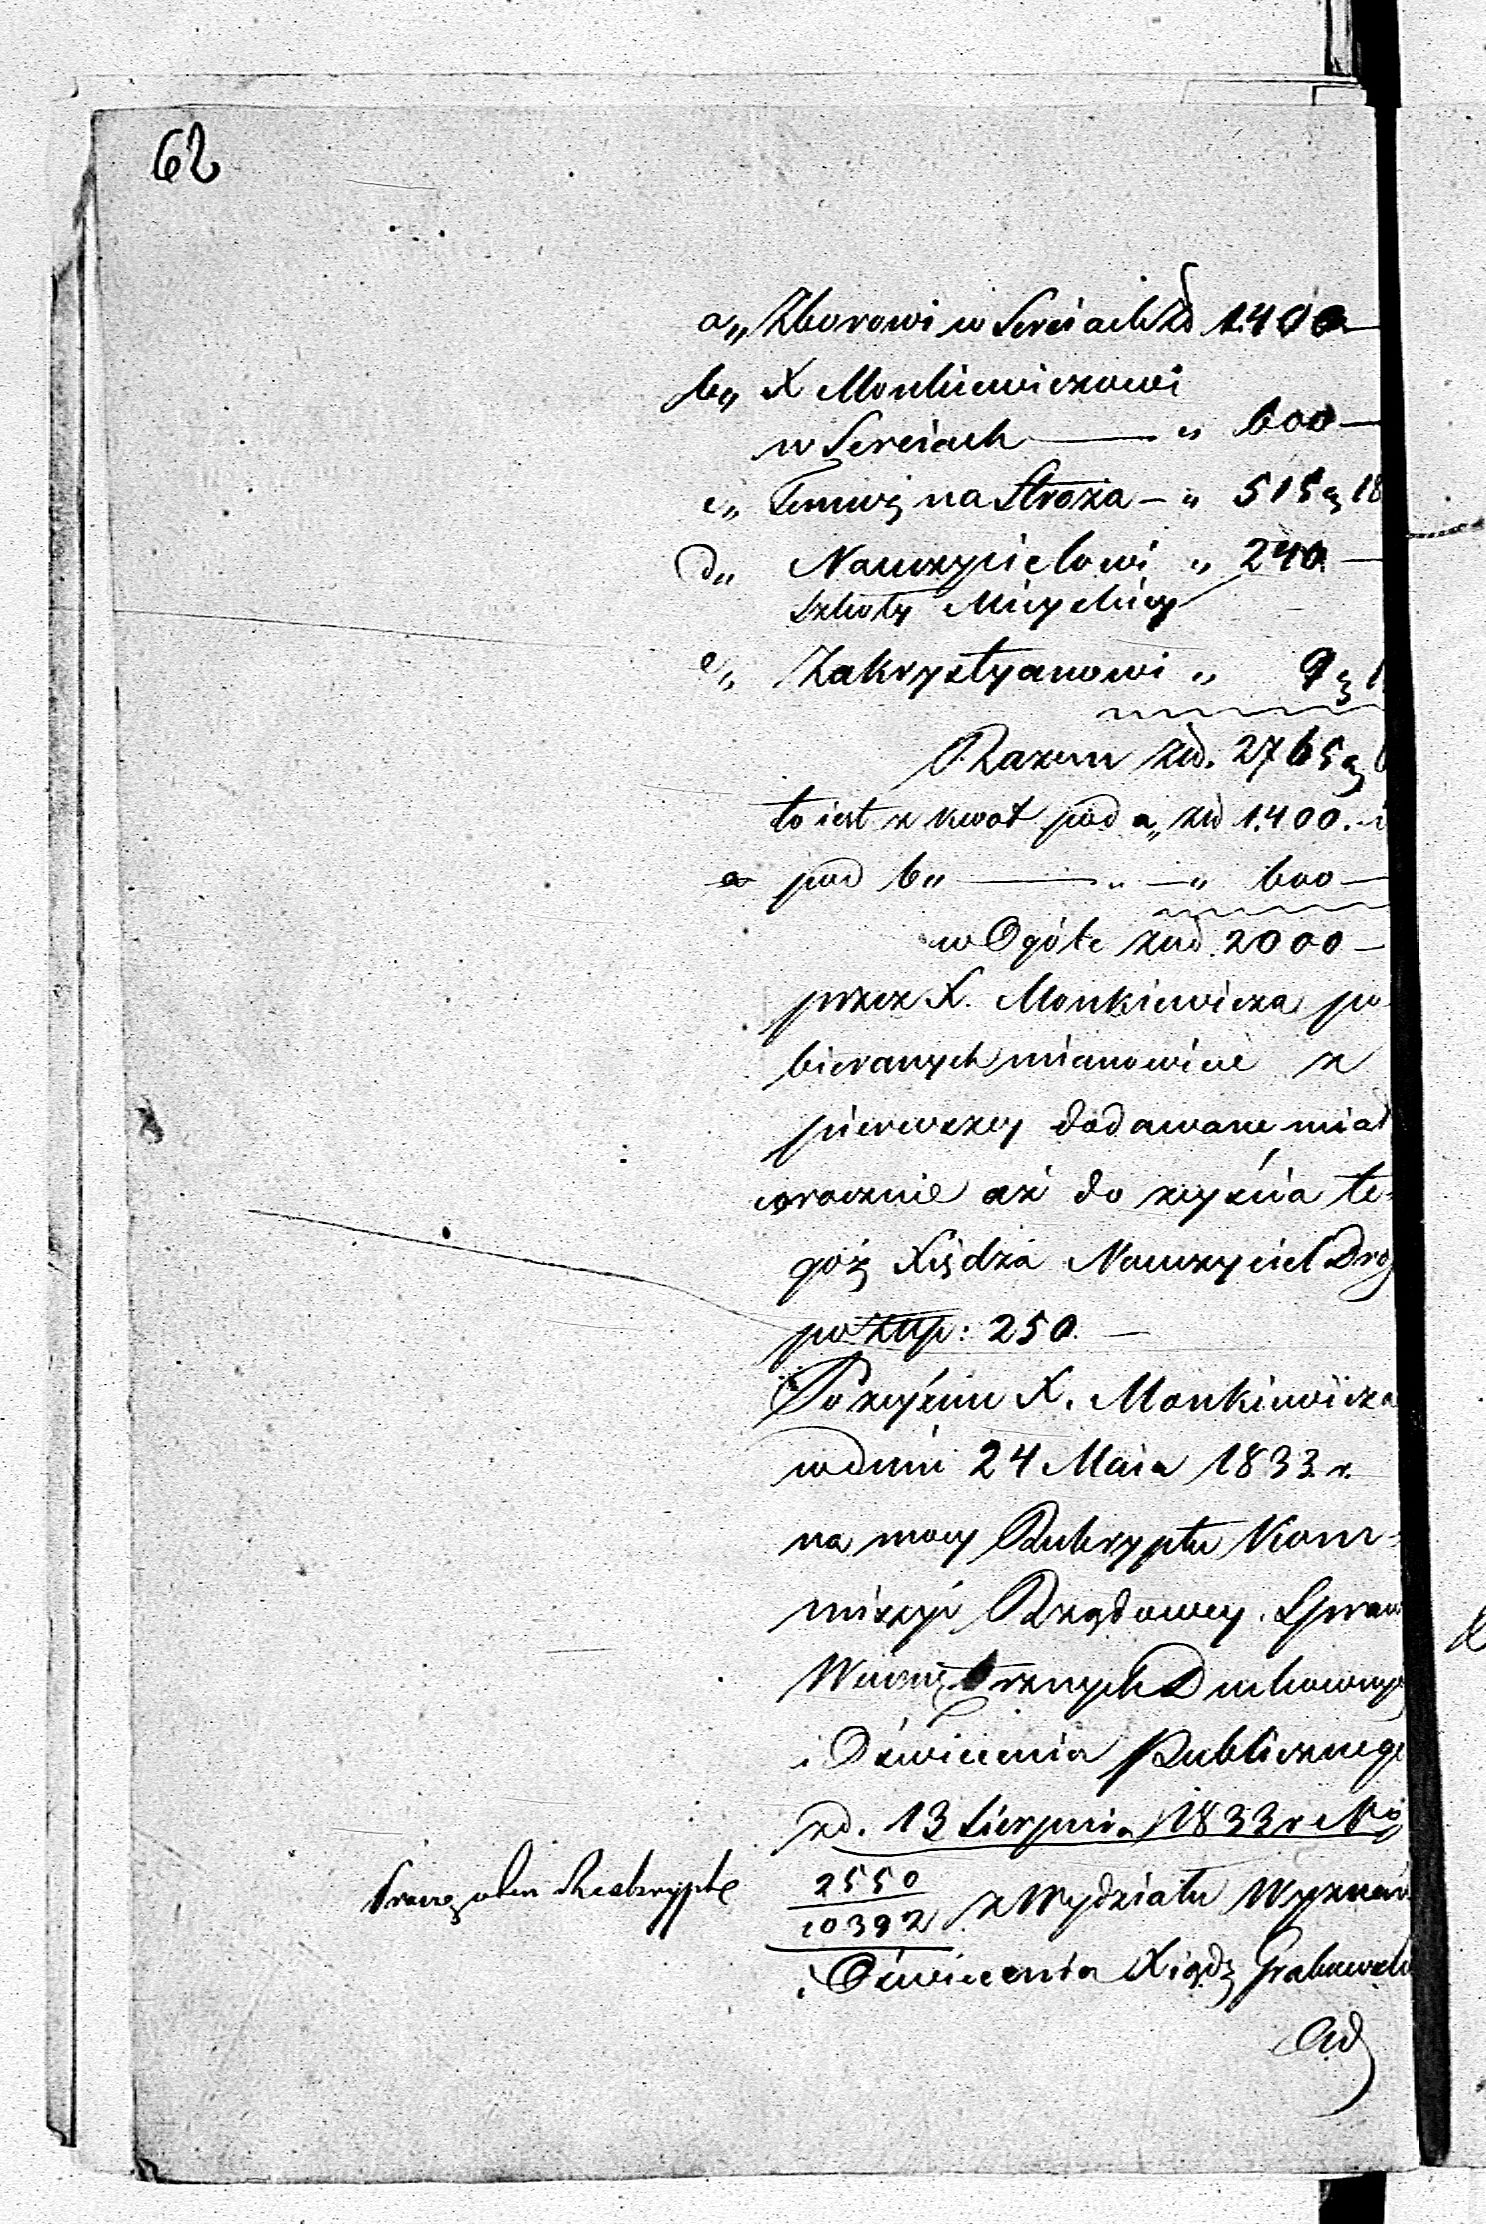 62
a„ Zborowi w Sereiach Zł 1.400—
b„ X Monkiewiczowi
w Sereiach — „ 600—
c„ Temuż na Stróża — „ 515 g 18
d„ Nauczycielowi „ 240 —
Szkoły Mieyskiey
e„ Zakrystyanowi „ 9 g
Razem złł. 2765 g
to iest z kwot pod a„ złł 1.400. i
pod b„ — „ — „ 600—
w Ogóle złł. 2000—
przez X. Monkiewicza po-
bieranych mianowicie z
pierwszey dodawane miał
corocznie aż do zeyścia te-
goż Xiędza Nauczyciel
po Złłp: 250. —
Po zeyściu X. Monkiewicza
w dniu 24 Maia 1833 r.
na mocy Reskryptu Kom-
missyi Rządowey Spraw
Wewnętrznych Duchownych
i Oświecenia Publicznego
zd. 13 Sierpnia 1833 r No
2550
10392 z Wydziału Wyznań
i Oświecenia Xiądz Grabowski
Reskryptu